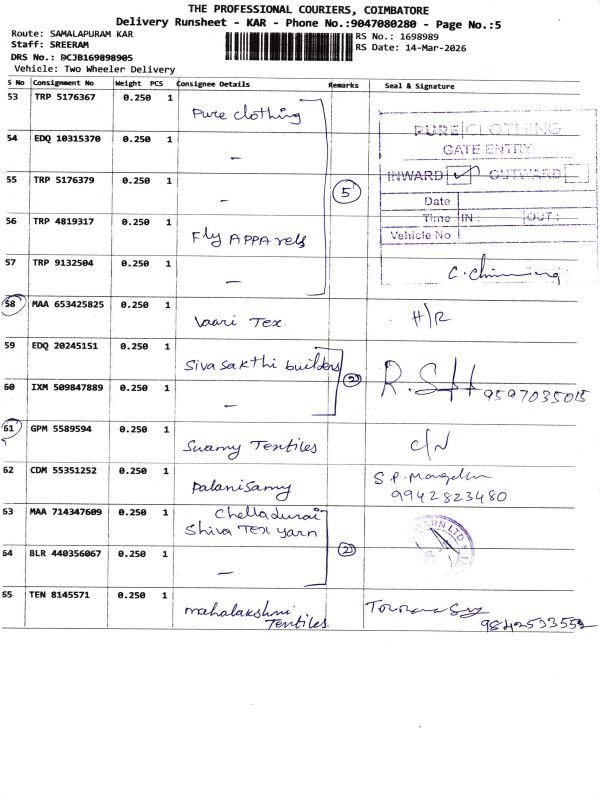 THE PROFESSIONAL COURIERS, COIMBATORE
Delivery Runsheet - KAR - Phone No.:9047080280 - Page No.:5
Route: SAMALAPURAM KAR
RS No.: 1698989
Staff: SREERAM
RS Date: 14-Mar-2026
DRS No.: DCJB169898905
Vehicle: Two Wheeler Delivery
S No Consignment No Weight PCS Consignee Details Remarks Seal & Signature
53 TRP 5176367 0.250 1 Pure clothing
54 EDQ 10315370 0.250 1 —
PURE CLOTHING
GATE ENTRY
55 TRP 5176379 0.250 1 — 5
INWARD ✓ OUTWARD
Date
56 TRP 4819317 0.250 1 Fly APPArels
Time IN : OUT :
Vehicle No
57 TRP 9132504 0.250 1 —
58 MAA 653425825 0.250 1 Vaari Tex. H/R
59 EDQ 20245151 0.250 1 Sivasakthi builders 2
60 IXM 509847889 0.250 1 — 9597035015
61 GPM 5589594 0.250 1 Swamy Textiles C/N
62 CDM 55351252 0.250 1 Palanisamy S.P.
9942823480
63 MAA 714347609 0.250 1 Chelladurai
Shiva Tex yarn
64 BLR 440356067 0.250 1 — 2
65 TEN 8145571 0.250 1 mahalakshmi
Textiles